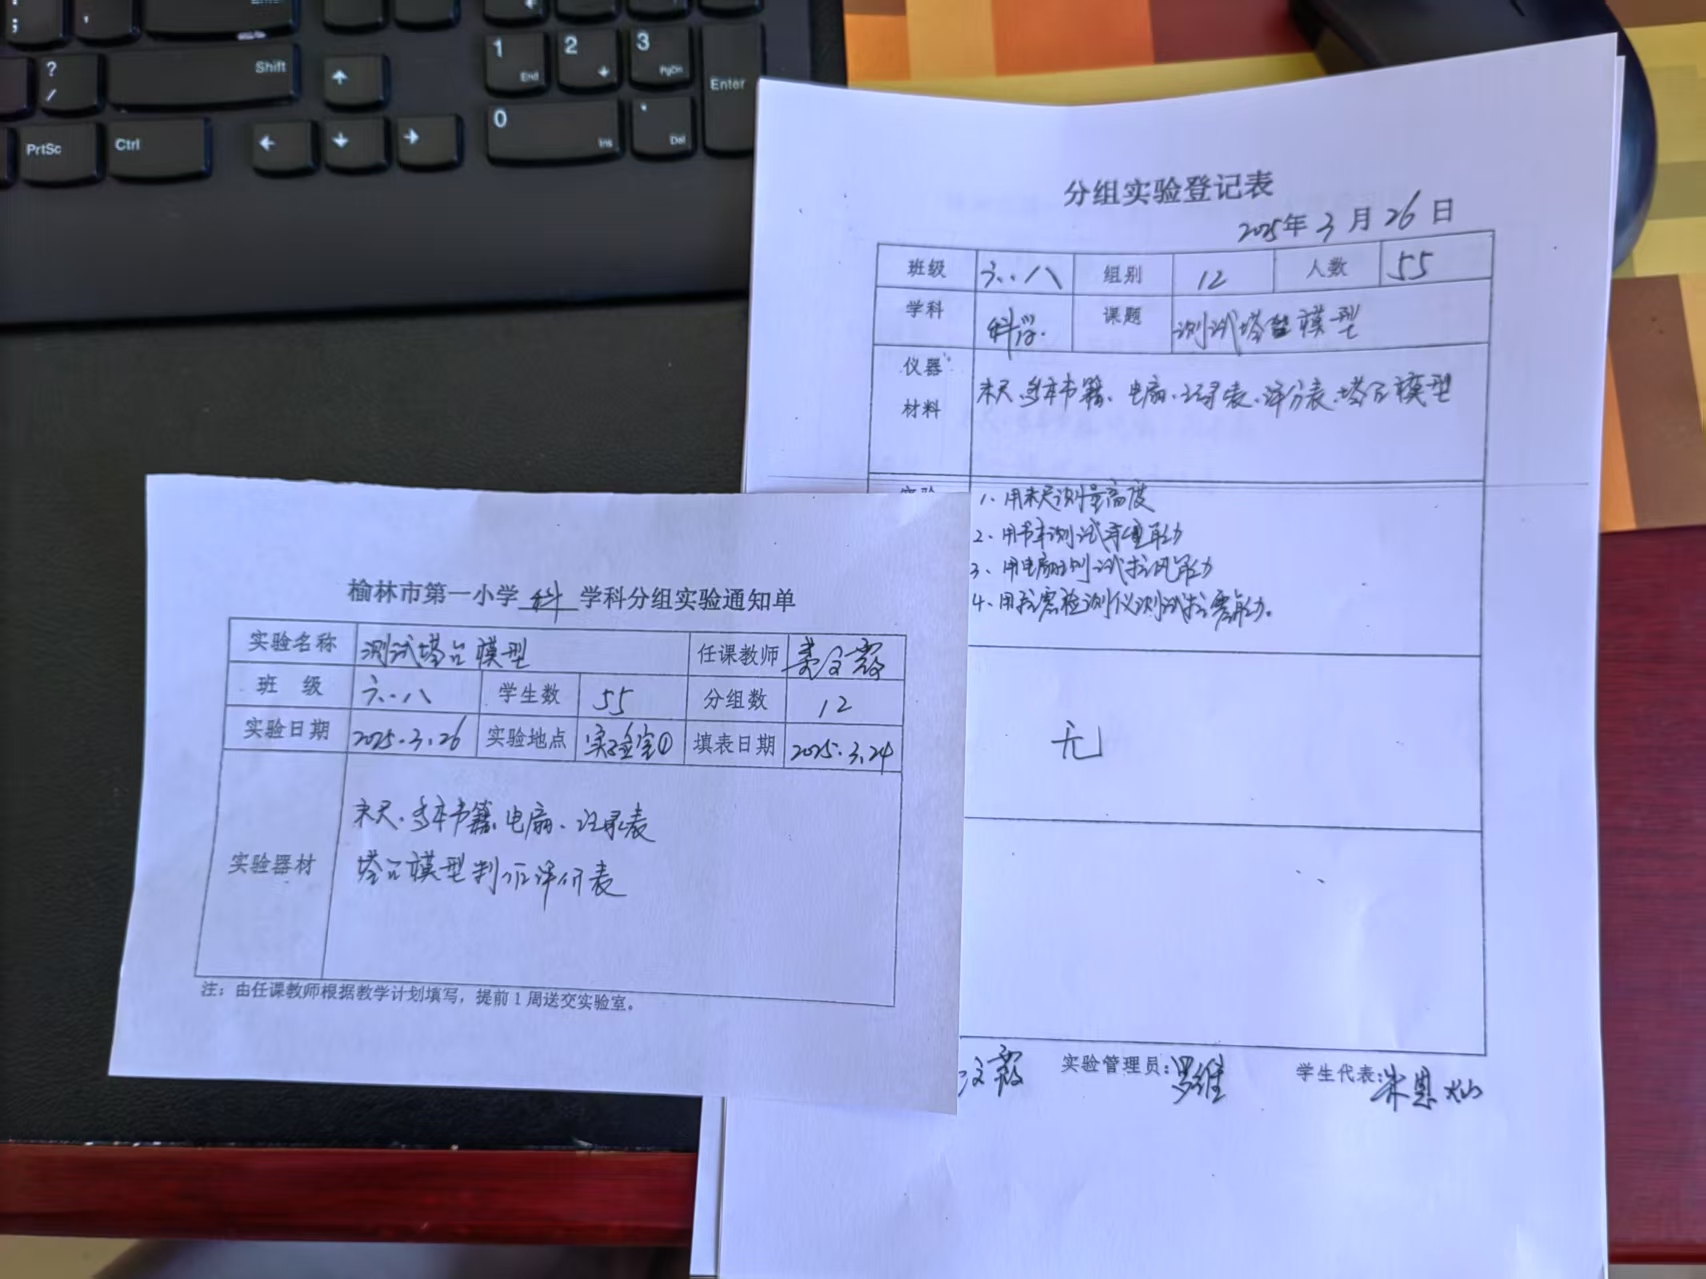 Enter
Shift
?
/
PrtSc
Ctrl
1
End
2
3
PgDn
Enter
0
Ins
.
Del
分组实验登记表
2025年3月26日
班级 六.八 组别 12 人数 55
学科 科学. 课题 测试塔台模型
仪器
材料
米尺、多本书籍、电扇、记录表、评分表、塔台模型
实验
1、用米尺测量高度
2、用书本测试承重能力
3、用电扇测试抗风能力
4、用抗震检测仪测试抗震能力。
无
文霞 实验管理员:罗维 学生代表:朱恩
榆林市第一小学 科 学科分组实验通知单
实验名称 测试塔台模型 任课教师 姜文霞
班 级 六.八 学生数 55 分组数 12
实验日期 2025.3.26 实验地点 实验室① 填表日期 2025.3.24
实验器材
米尺、多本书籍、电扇、记录表
塔台模型制作评价表
注：由任课教师根据教学计划填写，提前1周送交实验室。